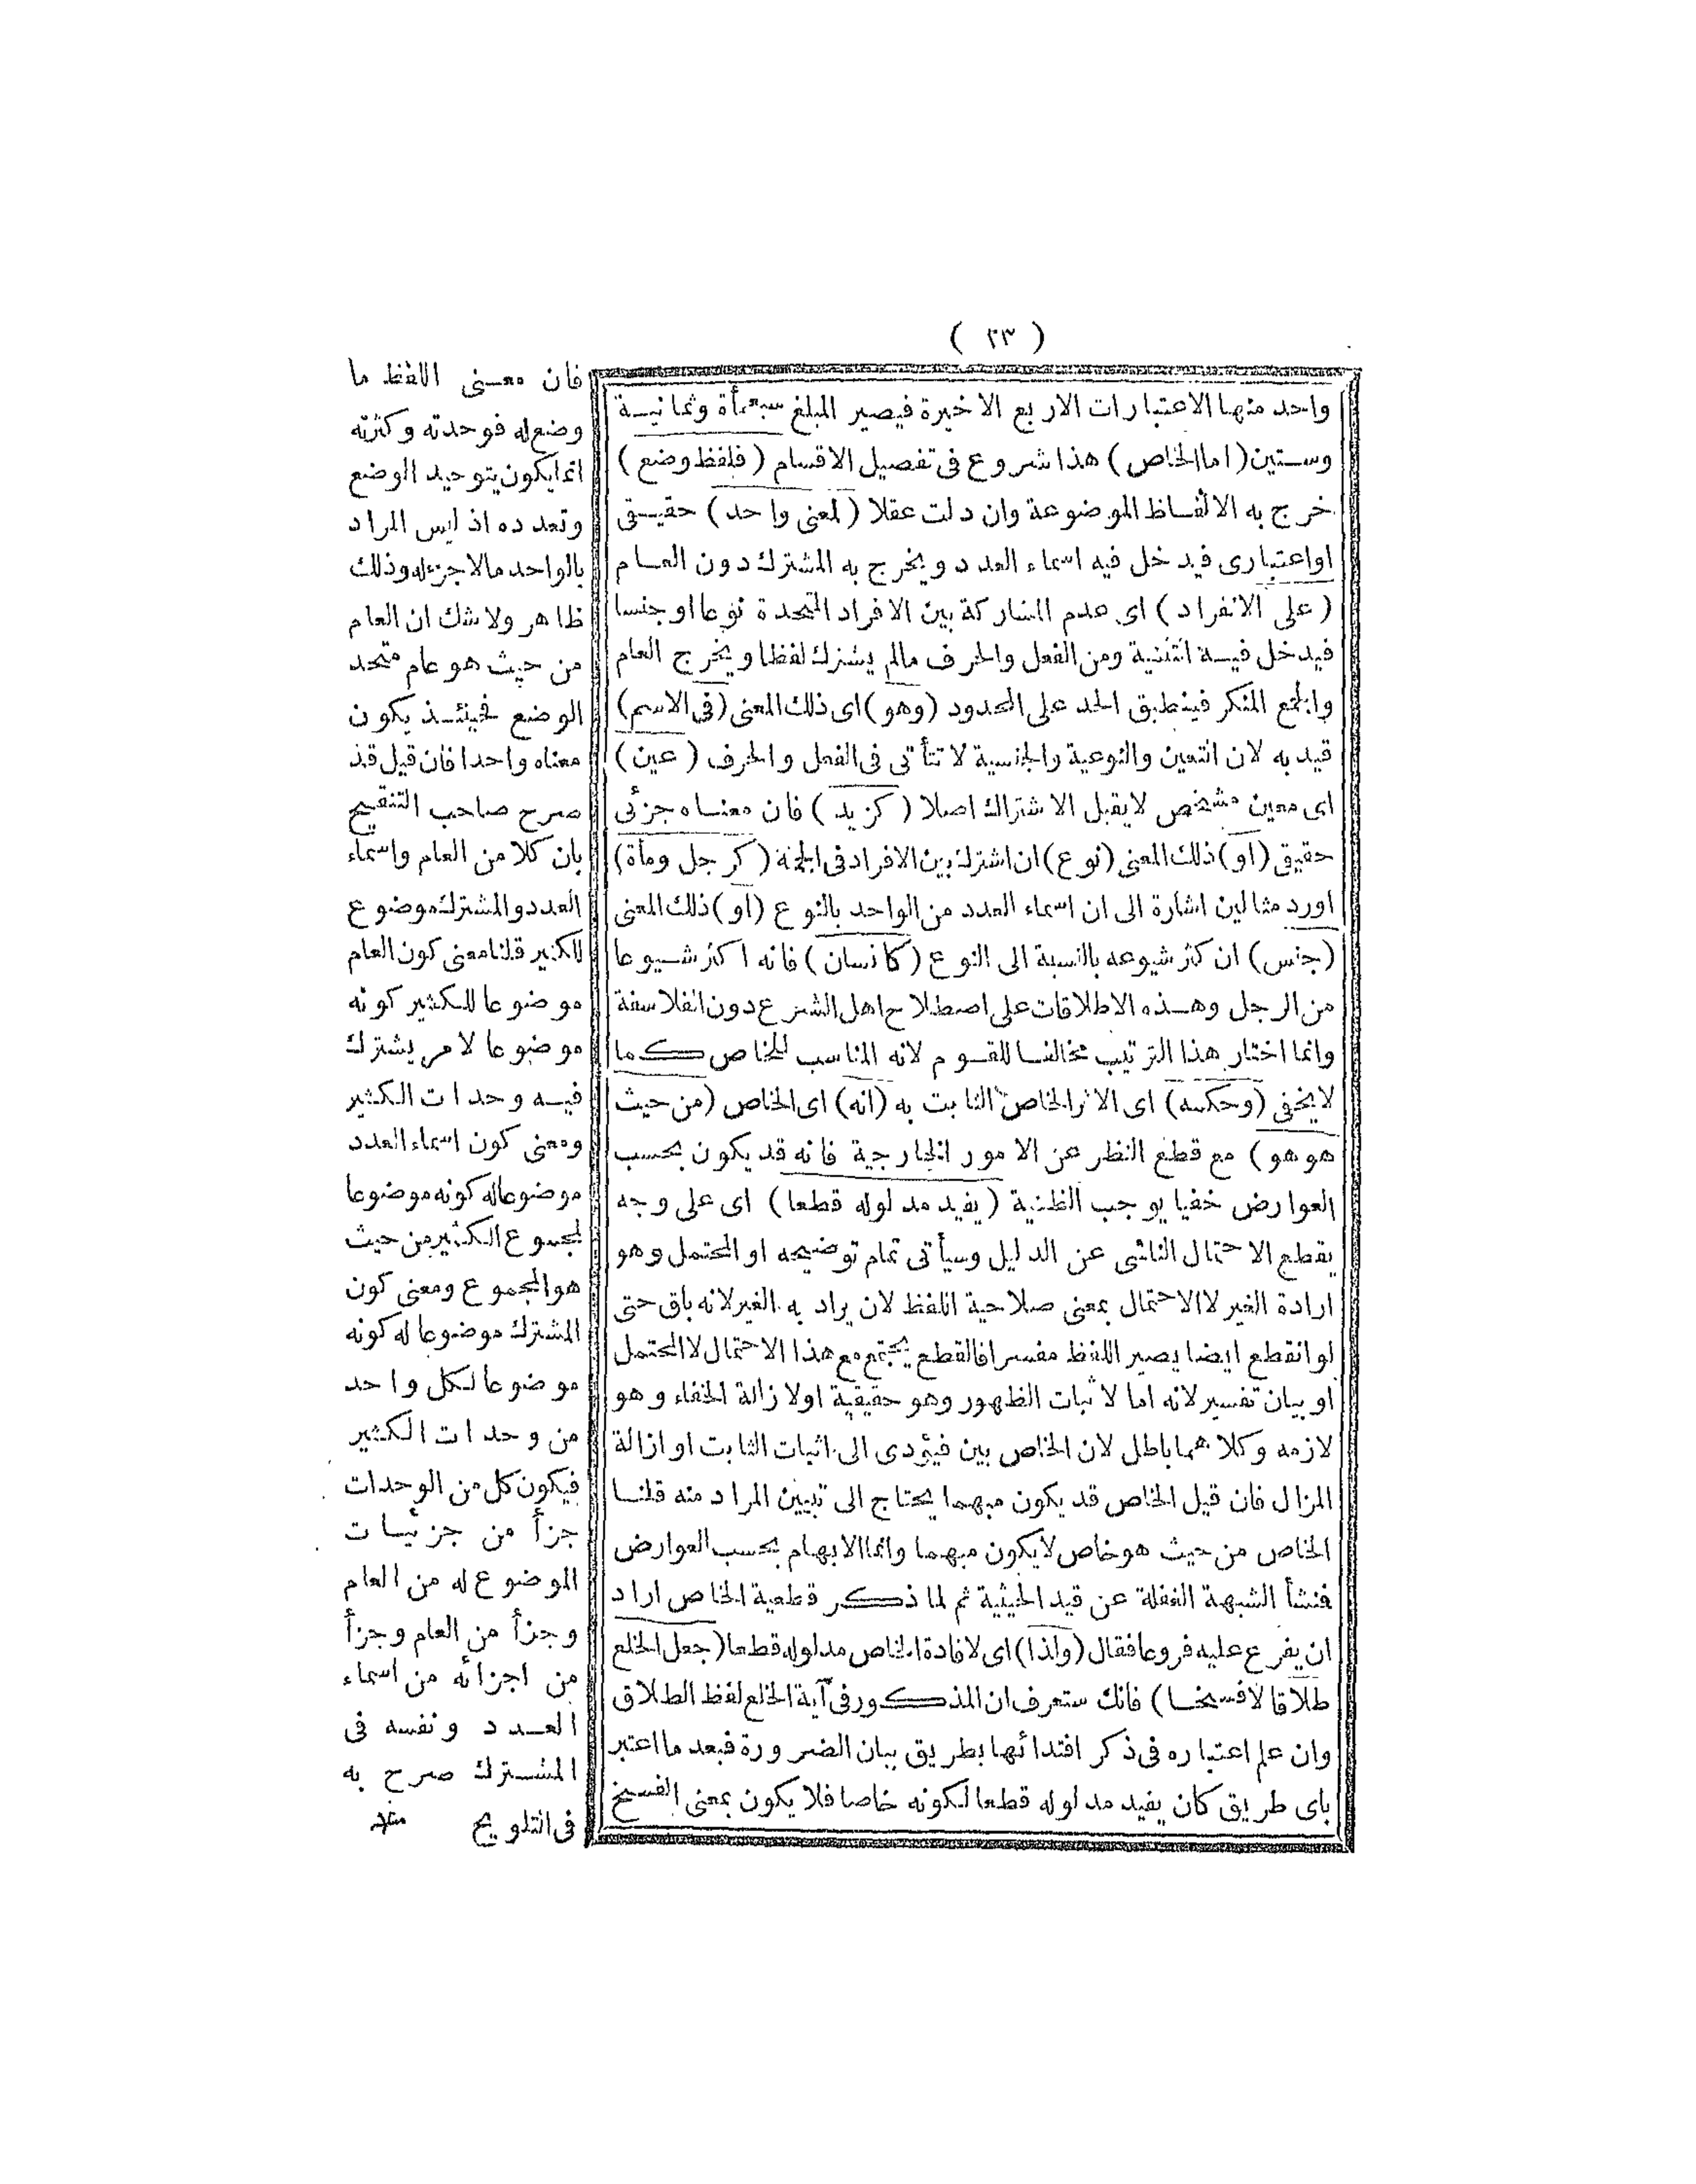 ( ٢٣ )
واحد منها الاعتبارات الاربع الاخيرة فيصير المبلغ سبعمأة وثمانيـة
وستين (اما الخاص) هذا شروع فى تفصيل الاقسام (فلفظ وضع)
خرج به الالفاظ الموضوعة وان دلت عقلا (لمعنى واحد) حقيقى
او اعتبارى فيدخل فيه اسماء العدد ويخرج به المشترك دون العام
(على الانفراد) اى عدم المشاركة بين الافراد المتحدة نوعا او جنسا
فيدخل فيه التثنية ومن الفعل والحرف مالم يشترك لفظا ويخرج العام
والجمع المنكر فينطبق الحد على المحدود (وهو) اى ذلك المعنى (فى الاسم)
قيد به لان التعين والنوعية والجنسية لا تتأتى فى الفعل والحرف (عين)
اى معين مشخص لايقبل الاشتراك اصلا (كزيد) فان معناه جزئى
حقيقى (او) ذلك المعنى (نوع) ان اشترك بين الافراد فى الجملة (كرجل ومأة)
اورد مثالين اشارة الى ان اسماء العدد من الواحد بالنوع (او) ذلك المعنى
(جنس) ان كثر شيوعه بالنسبة الى النوع (كانسان) فانه اكثر شيوعا
من الرجل وهذه الاطلاقات على اصطلاح اهل الشرع دون الفلاسفة
وانما اختار هذا الترتيب مخالفا للقوم لانه المناسب للخاص كما
لايخفى (وحكمه) اى الاثر الخاص الثابت به (انه) اى الخاص (من حيث
هو هو) مع قطع النظر عن الامور الخارجية فانه قد يكون بحسب
العوارض خفيا يوجب الظنية (يفيد مدلوله قطعا) اى على وجه
يقطع الاحتمال الناشى عن الدليل وسيأتى تمام توضيحه او المحتمل وهو
ارادة الغير لا الاحتمال بمعنى صلاحية اللفظ لان يراد به الغير لانه باق حتى
لو انقطع ايضا يصير اللفظ مفسرا فالقطع يجتمع مع هذا الاحتمال لا المحتمل
او بيان تفسير لانه اما لاثبات الظهور وهو حقيقية او لازالة الخفاء وهو
لازمه وكلاهما باطل لان الخاص بين فيؤدى الى اثبات الثابت او ازالة
المزال فان قيل الخاص قد يكون مبهما يحتاج الى تبيين المراد منه قلنـا
الخاص من حيث هو خاص لايكون مبهما وانما الابهام بحسب العوارض
فنشأ الشبهة الغفلة عن قيد الحيثية ثم لما ذكر قطعية الخاص اراد
ان يفرع عليه فروعا فقال (ولذا) اى لافادة الخاص مدلوله قطعا (جعل الخلع
طلاقا لافسخا) فانك ستعرف ان المذكور فى آية الخلع لفظ الطلاق
وان علم اعتباره فى ذكر افتدائها بطريق بيان الضرورة فبعد ما اعتبر
باى طريق كان يفيد مدلوله قطعا لكونه خاصا فلا يكون بمعنى الفسخ
فان معنى اللفظ ما
وضع له فوحدته وكثرته
انما يكون بتوحيد الوضع
وتعدده اذ ليس المراد
بالواحد ما لا جزء له وذلك
ظاهر ولاشك ان العام
من حيث هو عام متحد
الوضع فحينئذ يكون
معناه واحدا فان قيل قد
صرح صاحب التنقيح
بان كلا من العام واسماء
العدد والمشترك موضوع
للكثير قلنا معنى كون العام
موضوعا للكثير كونه
موضوعا لامر يشترك
فيه وحدات الكثير
ومعنى كون اسماء العدد
موضوعا له كونه موضوعا
لمجموع الكثير من حيث
هو المجموع ومعنى كون
المشترك موضوعا له كونه
موضوعا لكل واحد
من وحدات الكثير
فيكون كل من الوحدات
جزأ من جزئيات
الموضوع له من العام
وجزأ من العام وجزأ
من اجزائه من اسماء
العدد ونفسه فى
المشترك صرح به
فى التلويح منه